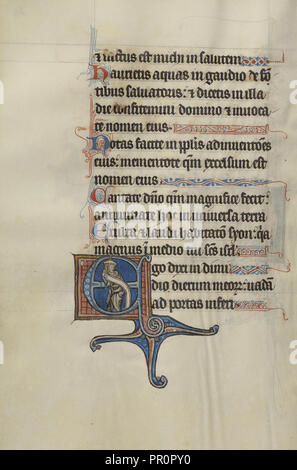 & factus est michi in salutem
Haurietis aquas in gaudio de fon
tibus saluatoris: & dicetis in illa
die confitemini domino & inuoca
te nomen eius
Notas facite in populis adinuentiones
eius: mementote quoniam excelsum est
nomen eius
Cantate dño qm magnifice fecit:
annunciate hoc in uniuersa terra
Exulta & lauda habitatio syon: qa
magnus in medio tui scs isrl
Ego dixi in dimi
dio dierum meoꝝ: uadam
ad portas inferi
alamy
PR0PY0
www.alamy.com